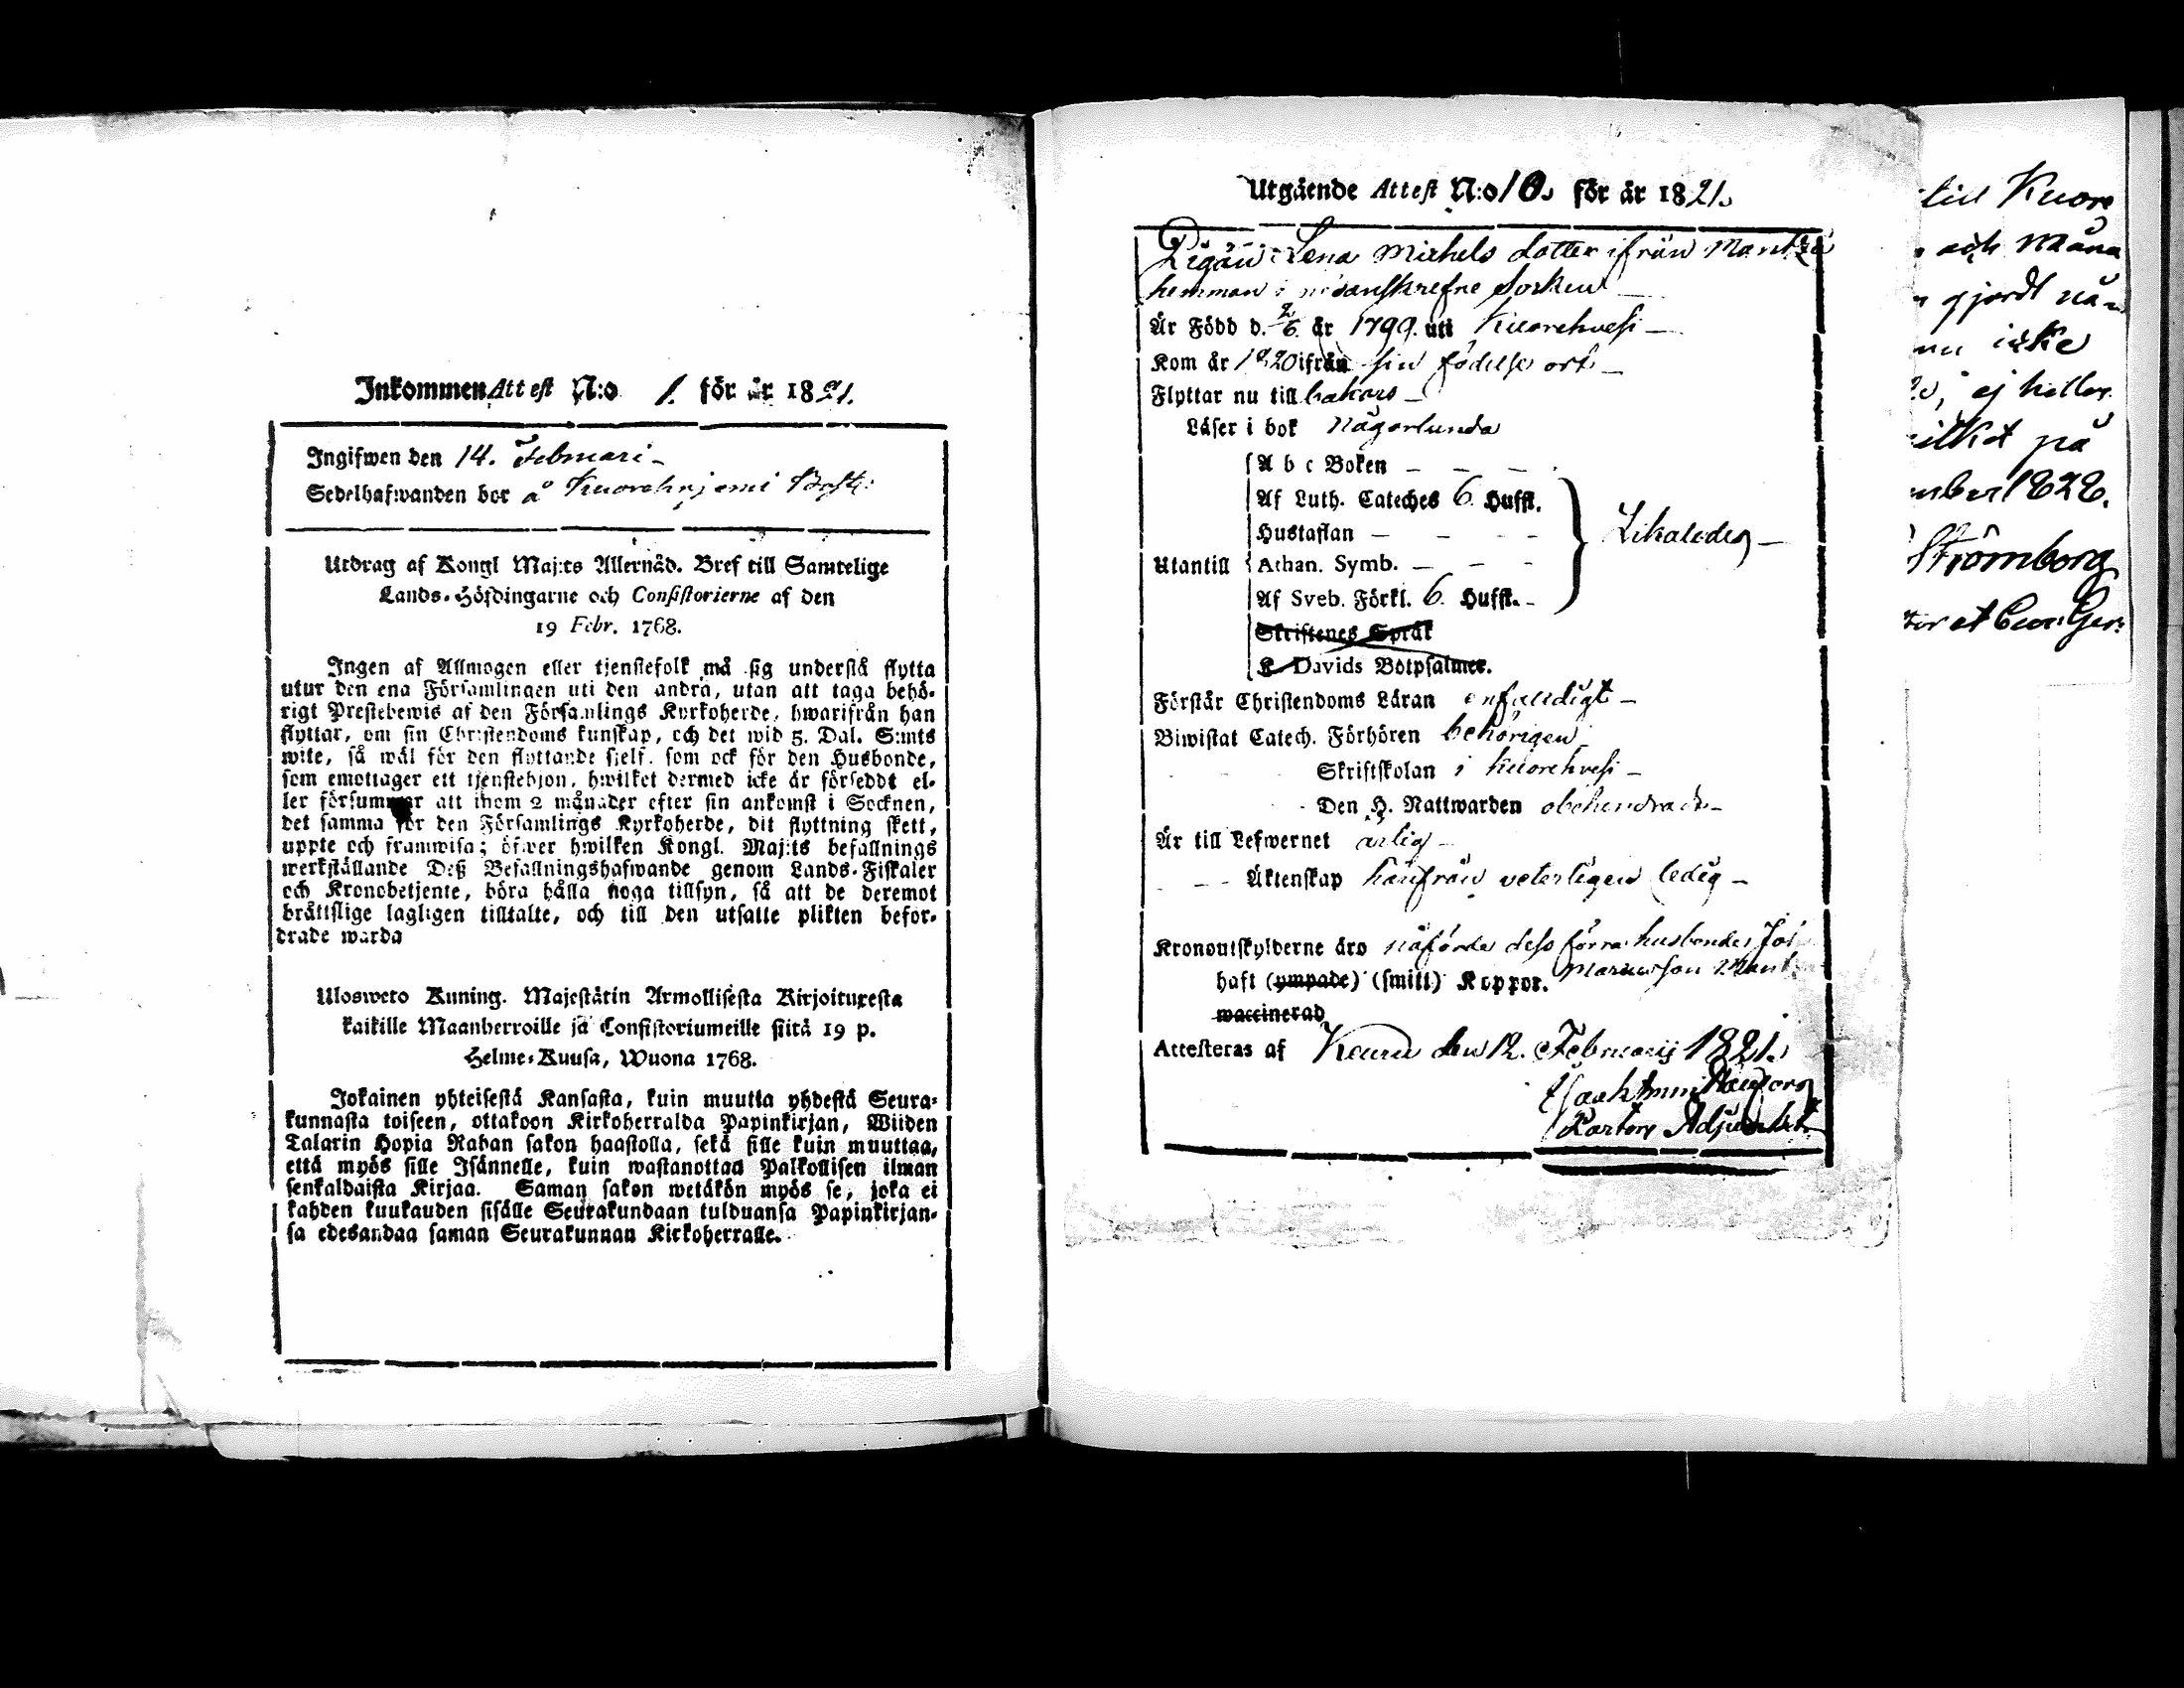 Inkommen Attest N:o 1. för år 1821.
Ingifwen den 14. Februari –
Sedelhafwanden bor å
Utdrag af Kongl Maj:ts Allernåd. Bref till Samtelige
Lands-Höfdingarne och Consistorierne af den
19 Febr. 1768.
Ingen af Allmogen eller tjenstefolk må sig understå flytta
utur den ena Församlingen uti den andra, utan att taga behö-
rigt Prestebewis af den Församlings Kyrkoherde, hwarifrån han
flyttar, om sin Christendoms kunskap, och det wid 5. Dal. S:mts
wite, så wäl för den flyttande sjelf. som ock för den Husbonde,
som emottager ett tjenstehjon, hwilket dermed icke är försedt el-
ler försummar att inom 2 månader efter sin ankomst i Socknen,
det samma för den Församlings Kyrkoherde, dit flyttning skett,
uppte och framwisa; öfwer hwilken Kongl. Maj:ts befallnings
werkställande Deß Befallningshafwande genom Lands-Fiskaler
och Kronobetjente, böra hålla noga tillsyn, så att de deremot
bråttslige lagligen tilltalte, och till den utsatte plikten befor-
drade warda
Ulosweto Kuning. Majestätin Armollisesta Kirjoituxesta
kaikille Maanherroille ja Consistoriumeille siitä 19 p.
Helme-Kuusa, Wuona 1768.
Jokainen yhteisestä Kansasta, kuin muutta yhdestä Seura-
kunnasta toiseen, ottakoon Kirkoherralda Papinkirjan, Wiiden
Talarin Hopia Rahan sakon haastolla, sekä sille kuin muuttaa,
että myös sille Isännelle, kuin wastanottaa Palkollisen ilman
senkaldaista Kirjaa. Saman sakon wetäkön myös se, joka ei
kahden kuukauden sisälle Seurakundaan tulduansa Papinkirjan-
sa edesandaa saman Seurakunnan Kirkoherralle.
Utgående Attest N:o 10. för år 1821.
Pigan Lena Michels dotter ifrån
hemman i Socken –
År Född d. 2/6 år 1799. uti Kuorehvesi –
Kom år 1820 ifrån sin födelse ort –
Flyttar nu till bakars –
Läser i bok någorlunda
A b c Boken – – –
Af Luth. Cateches 6. Huffst.
Hustaflan – – – –
Utantill Athan. Symb. – – –
Af Sveb. Förkl. 6. Huffst. –
Skriftenes Språk
K. Davids Botpsalmer.
Likaledes –
Förstår Christendoms Läran enfaldigt –
Biwistat Catech. Förhören behörigen
Skriftskolan i Kuorehvesi –
Den H. Nattwarden
Är till Lefwernet ärlig –
– – Äktenskap härifrån veterligen ledig –
Kronoutskylderne äro påförde dess förra husbonde
haft (ympade) (smitt) Koppor.
waccinerad
Attesteras af Keuru den 12. Februarij 1821.
Pastors Adjunkt
till Kuore
och
gjordt
icke
ej heller
på
1828.
Strömborg
et